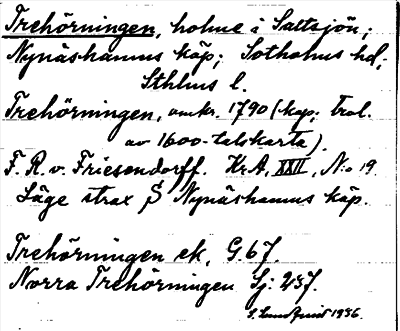 Trehörningen, holme i Saltsjön;
Nynäshamns köp; Sotholms hd;
Sthlms l.
Trehörningen, omkr. 1790 (kop. trol.
av 1600-talskarta).
F. R. v. Friesendorff. KrA, XXII, No 19
Läge strax S Nynäshamns köp.
Trehörningen ek. G. 67.
Norra Trehörningen Sj: 237.
1936.